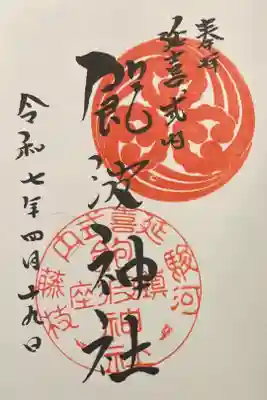 奉拝
延喜式内
飽波神社
令和七年四月二十九日
延喜式内
駿河
藤枝
鎮座
飽波神社